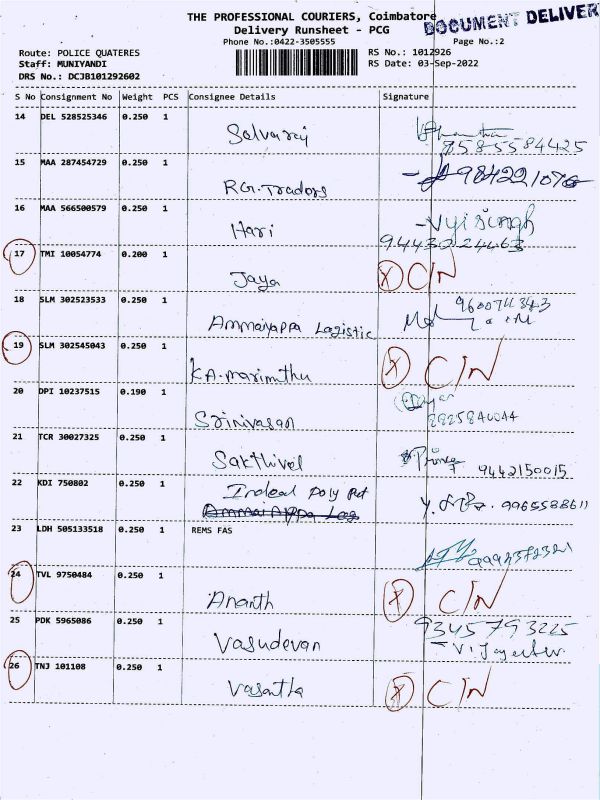 THE PROFESSIONAL COURIERS, Coimbatore
DOCUMENT DELIVER
Delivery Runsheet - PCG
Phone No.:0422-3505555
Page No.:2
Route: POLICE QUATERES
RS No.: 1012926
Staff: MUNIYANDI
RS Date: 03-Sep-2022
DRS No.: DCJB101292602
S No Consignment No Weight PCS Consignee Details Signature
14 DEL 528525346 0.250 1 Selvaraj
8585584425
15 MAA 287454729 0.250 1 R.G. Tradors
984221076
16 MAA 566500579 0.250 1 Hari
94430 24463
17 TMI 10054774 0.200 1 Jaya X C/N
18 SLM 302523533 0.250 1 Ammaiyappa Logistic
19 SLM 302545043 0.250 1 K.A. marimthu X C/N
20 DPI 10237515 0.190 1 Srinivasan
21 TCR 30027325 0.250 1 Sakthivel Prince 9442150015
22 KDI 750802 0.250 1 Indeal Poly Pet 9965588611
23 LDH 505133518 0.250 1 REMS FAS
24 TVL 9750484 0.250 1 Ananth X C/N
25 PDK 5965086 0.250 1 Vasudevan 9345793225
26 TNJ 101108 0.250 1 Vasantha X C/N